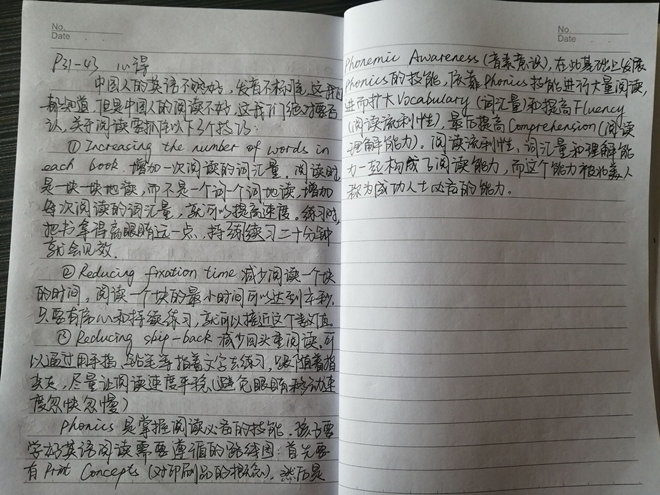 No.
Date
P31-43 心得
中国人的英语不够好，发音不标准，这我们
都知道，但是中国人的阅读不好，这我们绝对要否
认，关于阅读要抓住以下3个技巧：
① Increasing the number of words in
each book. 增加一次阅读的词汇量。阅读时
是一块一块地读，而不是一个词一个词地读，增加
每次阅读的词汇量，就可以提高速度。练习时，
把书拿得离眼睛远一点，持续练习二十分钟
就会见效。
② Reducing fixation time 减少阅读一个块
的时间，阅读一个块的最小时间可以达到 秒，
只要有 心和持续练习，就可以接近这个数值。
③ Reducing skip-back 减少回头重阅读，可
以通过用手指、 笔等指着文字去练习，眼 随着指
去走，尽量让阅读速度平稳（避免眼睛移动速
度忽快忽慢）
Phonics 是掌握阅读必备的技能。孩子要
学好英语阅读需要遵循的路线图：首先要
有 Print Concepts（对印刷品的概念），然后是
No.
Date
Phonemic Awareness（音素意识），在此基础上发展
Phonics的技能，依靠Phonics技能进行大量阅读，
进而扩大Vocabulary（词汇量）和提高Fluency
（阅读流利性），最后提高Comprehension（阅读
理解能力）。阅读流利性，词汇量和理解能
力一起构成了阅读能力，而这个能力被北美人
称为成功人士必备的能力。